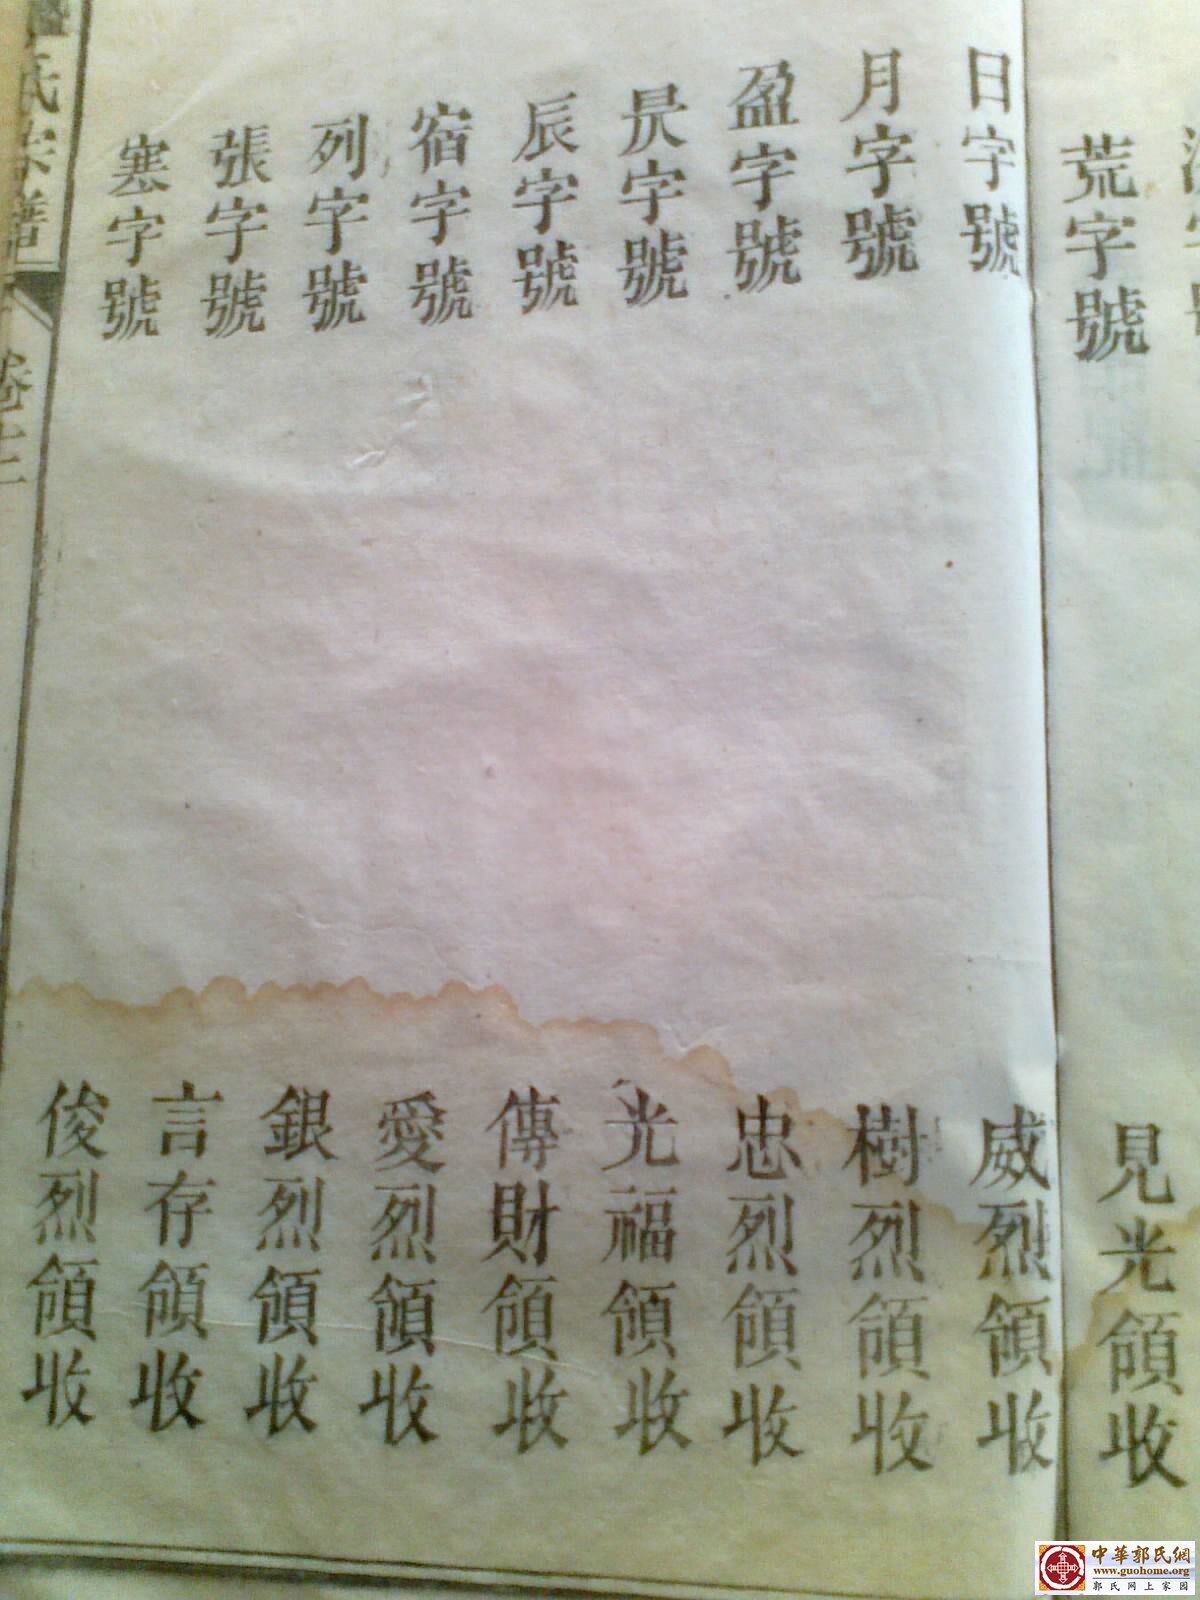 荒字號 見光領收
日字號 威烈領收
月字號 樹烈領收
盈字號 忠烈領收
昃字號 光福領收
辰字號 傳財領收
宿字號 愛烈領收
列字號 銀烈領收
張字號 言存領收
寒字號 俊烈領收
氏宗譜
卷
中華郭氏網
www.guohome.org
郭氏网上家园